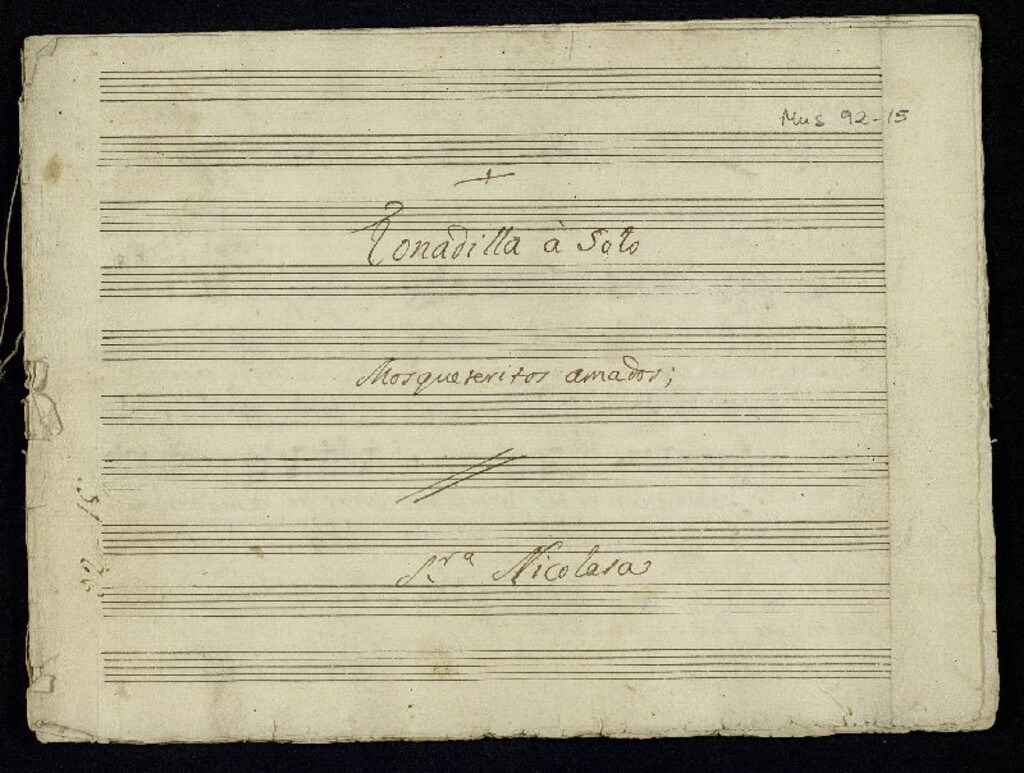 Mus 92-15
Tonadilla à Solo
Mosqueteritos amados;
S.ra Nicolasa